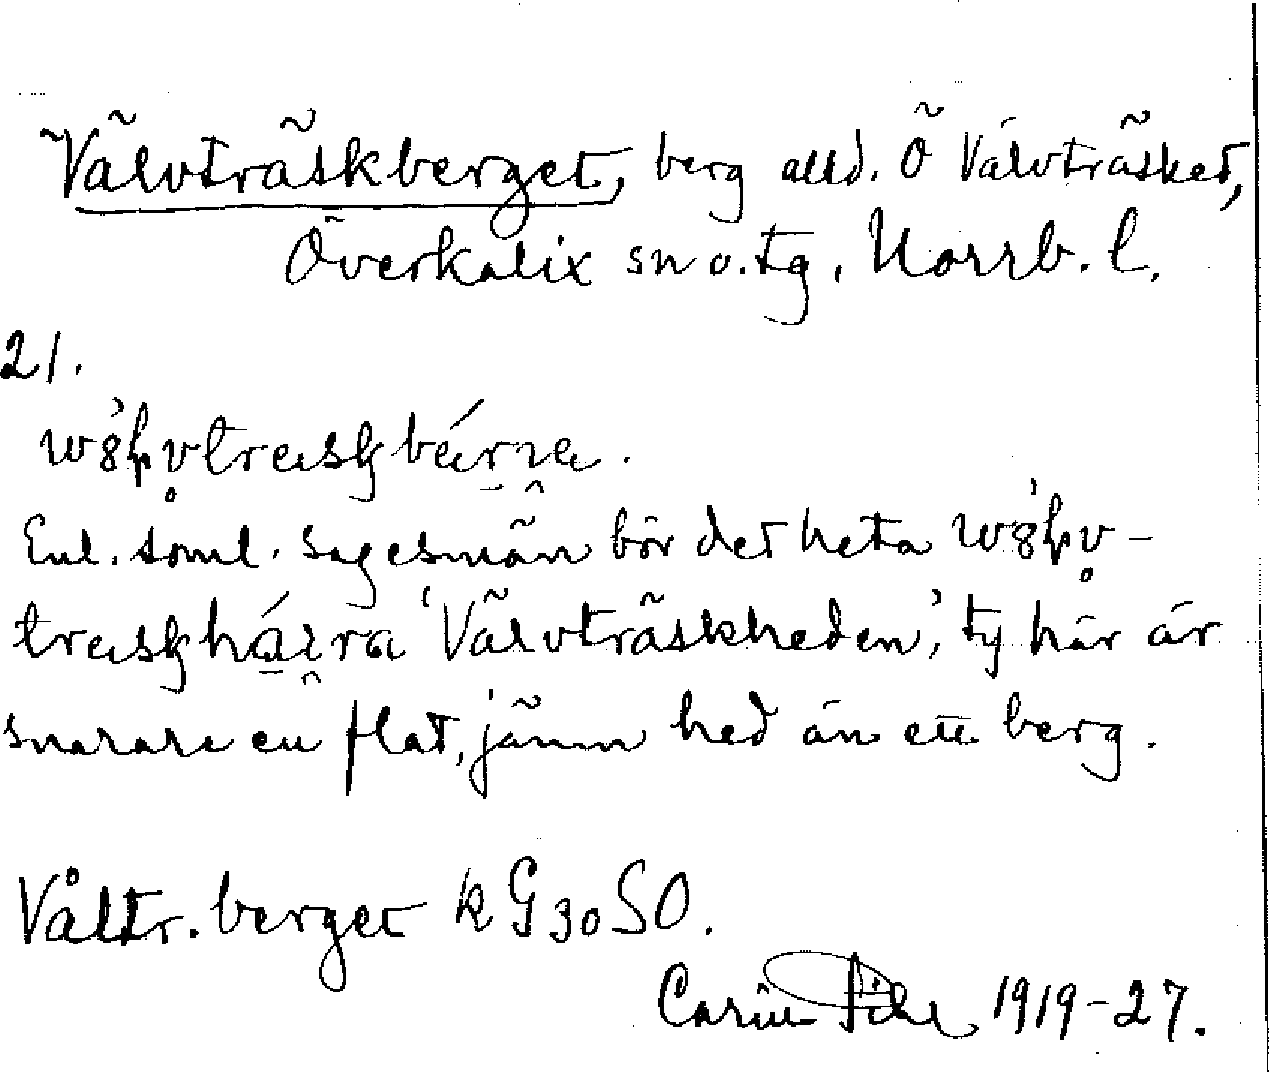 Välvträskberget, berg alld. Ö Välvträsket,
Överkalix sn o. tg, Norrb. l.
21.
Enl. soml. sagesmän bör det heta
'Välvträskheden', ty här är
snarare en flat, jämn hed än ett berg.
Våltr. berget k G30SO.
Carin Pihl 1919-27.